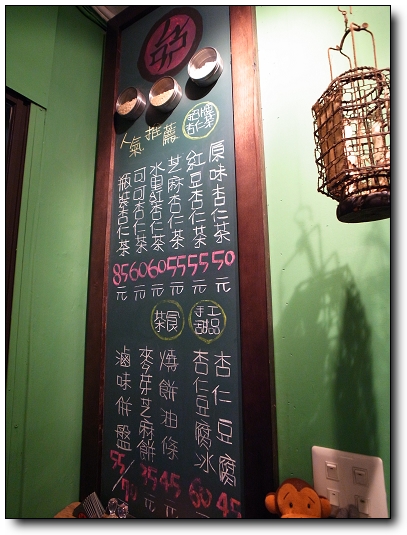 人氣推薦
杏仁茶
原味杏仁茶 50元
紅豆杏仁茶 55元
芝麻杏仁茶 55元
水果紅杏仁茶 60元
可可杏仁茶 60元
瓶裝杏仁茶 85元
手工甜品
杏仁豆腐 45
杏仁豆腐冰 60
茶食
燒餅油條 45
麥芽芝麻餅 35元
滷味併盤 55/70元